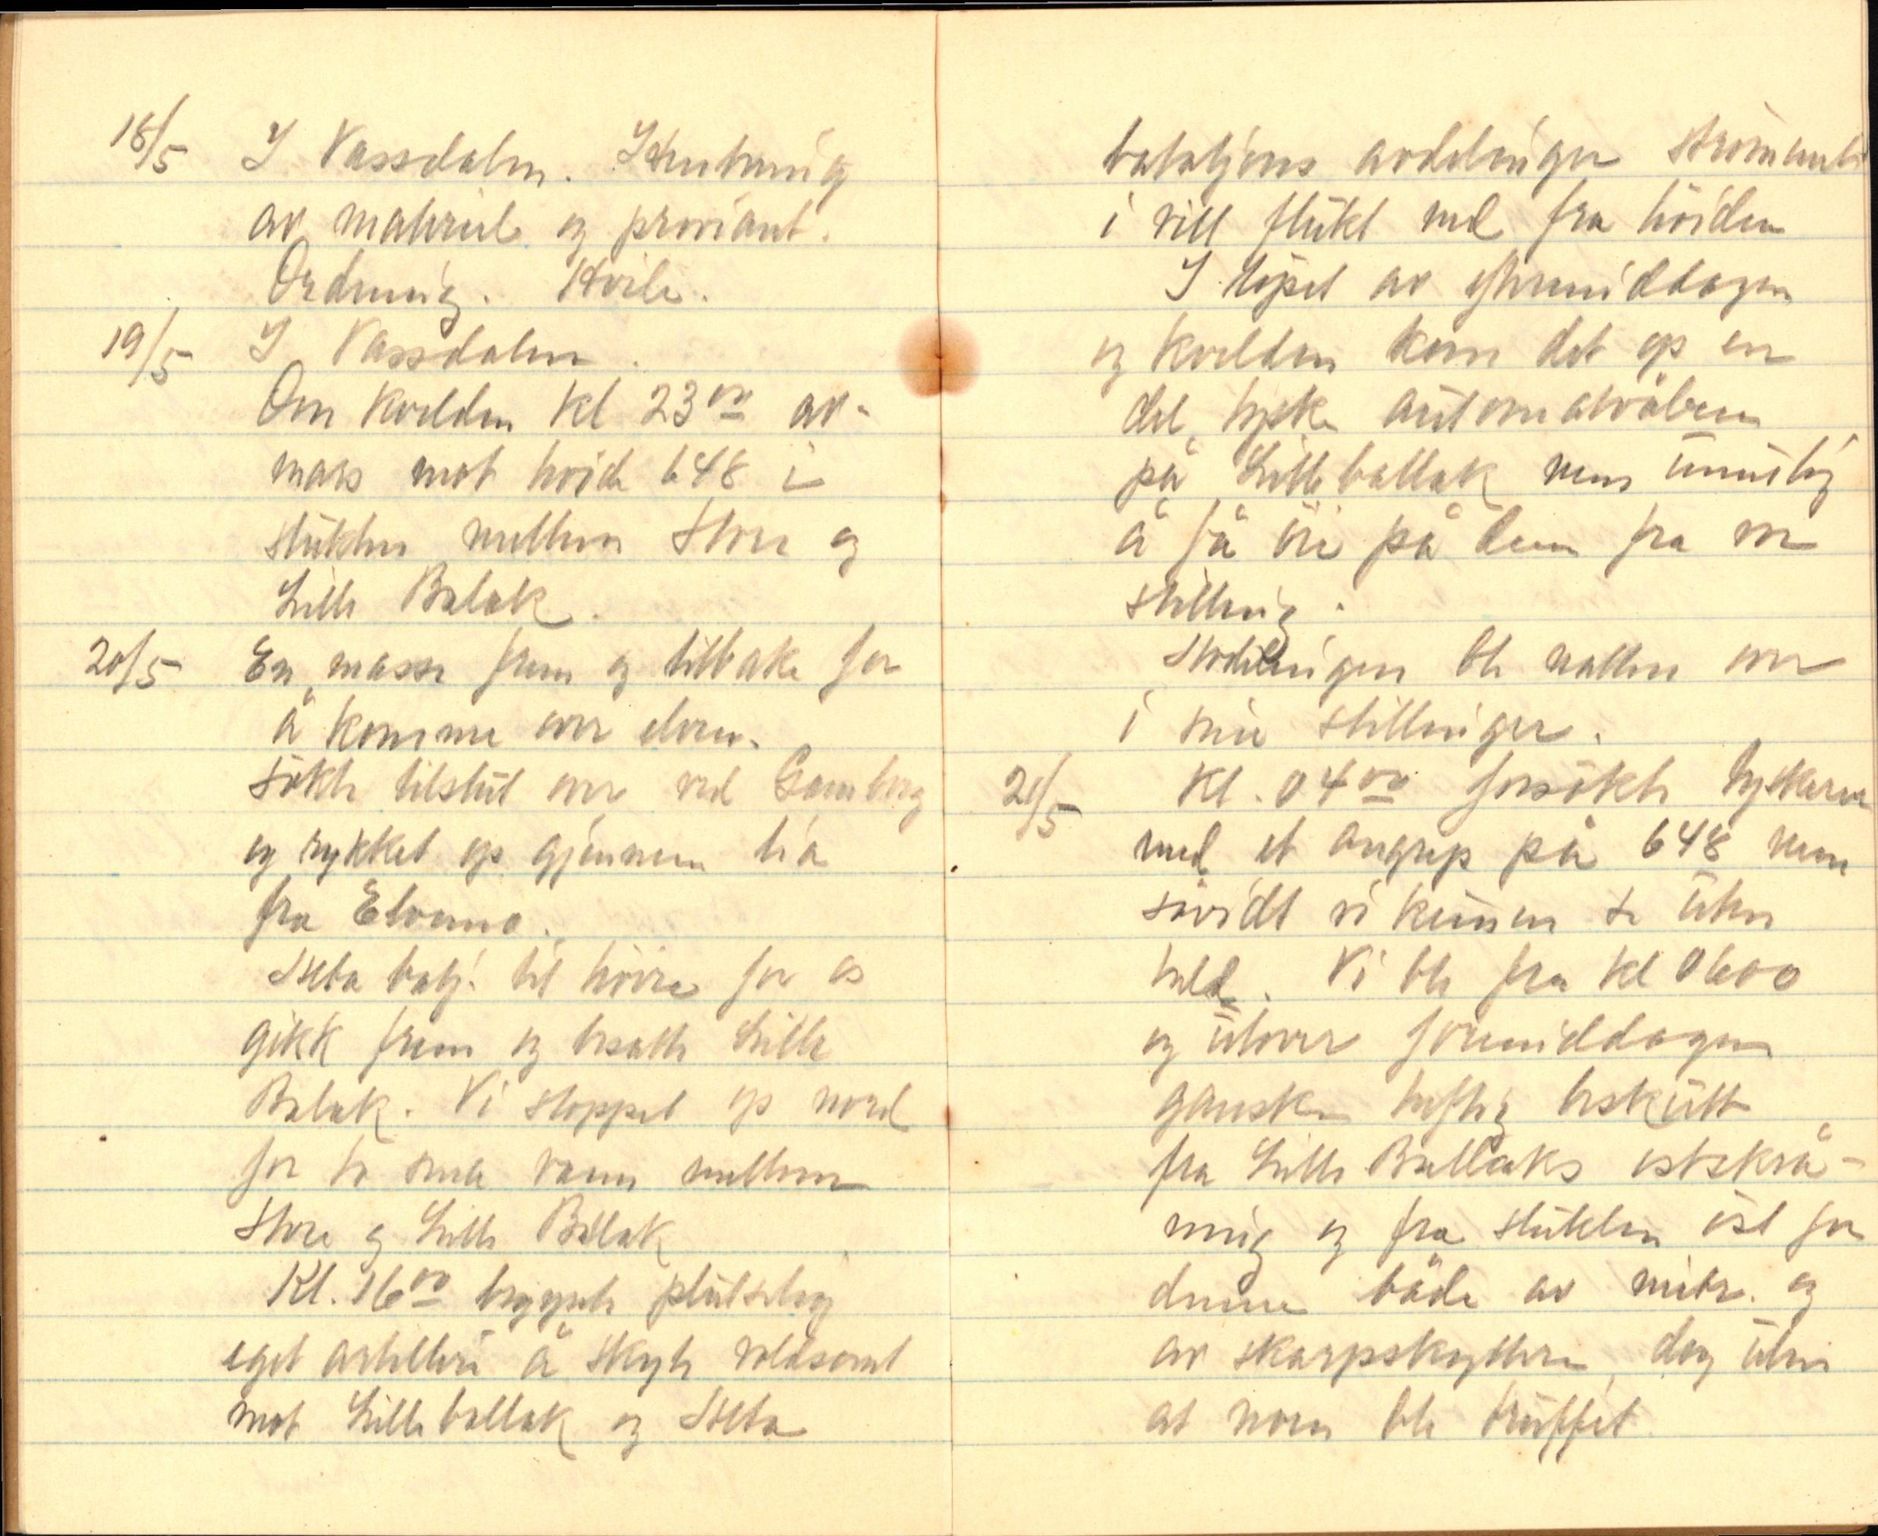 18/5 I Vassdalen. Istandsetning
av materiel og proviant.
Ordning. Hvile.
19/5 I Vassdalen.
Om kvelden kl 23⁰⁰ av-
mars mot höide 648 i
slukten mellem Store og
Lille Balak.
20/5 En masse frem og tilbake for
å komme over elven.
Søkte tilslut over ved Gamberg
og rykket op gjennem lia
fra Elvemo.
Alta batj. til höire for os
gikk frem og besatte Lille
Balak. Vi stoppet op nord
for to små vann mellem
Store og Lille Balak
Kl. 16⁰⁰ begynte plutselig
eget artilleri å skyte voldsomt
mot Lilleballak og Alta
bataljons avdelinger strömmet
i vill flukt ned fra höiden
I löpet av eftermiddagen
og kvelden kom det op en
del tyske automatvåben
på Lilleballak men umulig
å få öie på dem fra vor
stilling.
Avdelingen ble natten over
i sine stillinger.
21/5 Kl. 04⁰⁰ forsökte tyskerne
med et angrep på 648 men
såvidt vi kunne se uten
held. Vi ble fra kl 0600
og utover formiddagen
ganske heftig beskutt
fra Lille Ballaks östskrå-
ning og fra slukten öst for
denne både av mitr. og
av skarpskyttere, dog uten
at noen ble truffet.